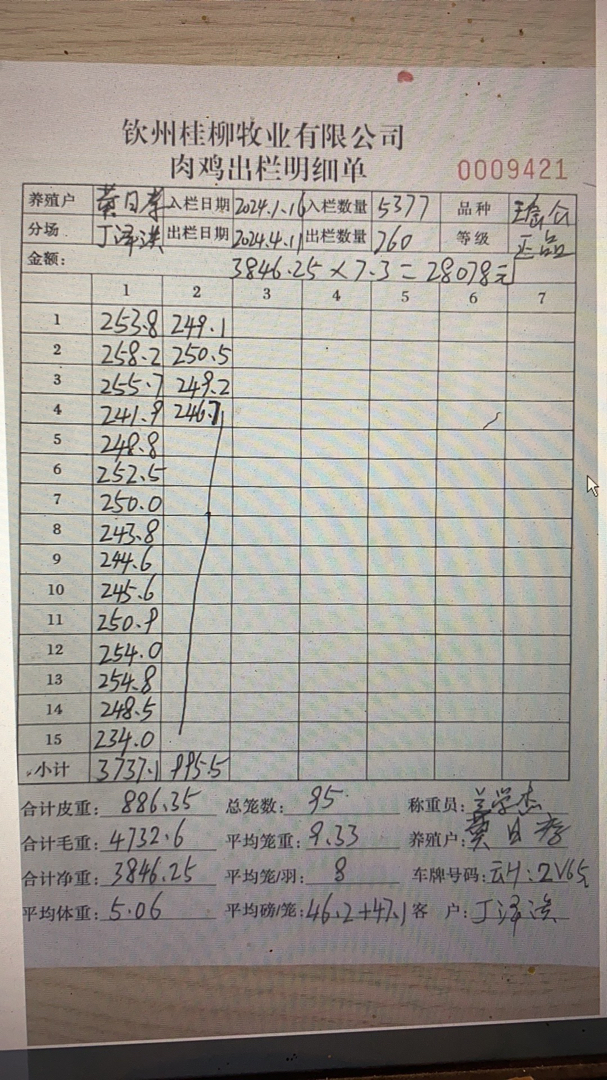 钦州桂柳牧业有限公司
肉鸡出栏明细单 0009421
养殖户 黄日孝 入栏日期 2024.1.16 入栏数量 5377 品种
分场 丁泽洪 出栏日期 2024.4.11 出栏数量 760 等级 正品
金额: 3846.25×7.3=28078元
1 2 3 4 5 6 7
1 253.8 249.1
2 258.2 250.5
3 255.7 249.2
4 241.9 246.7
5 248.8
6 252.5
7 250.0
8 243.8
9 244.6
10 245.6
11 250.9
12 254.0
13 254.8
14 248.5
15 234.0
小计 3737.1 995.5
合计皮重: 886.35 总笼数: 95 称重员: 兰学杰
合计毛重: 4732.6 平均笼重: 9.33 养殖户: 黄日孝
合计净重: 3846.25 平均笼/羽: 8 车牌号码:
平均体重: 5.06 平均磅/笼: 46.2+47.1 客 户: 丁泽洪